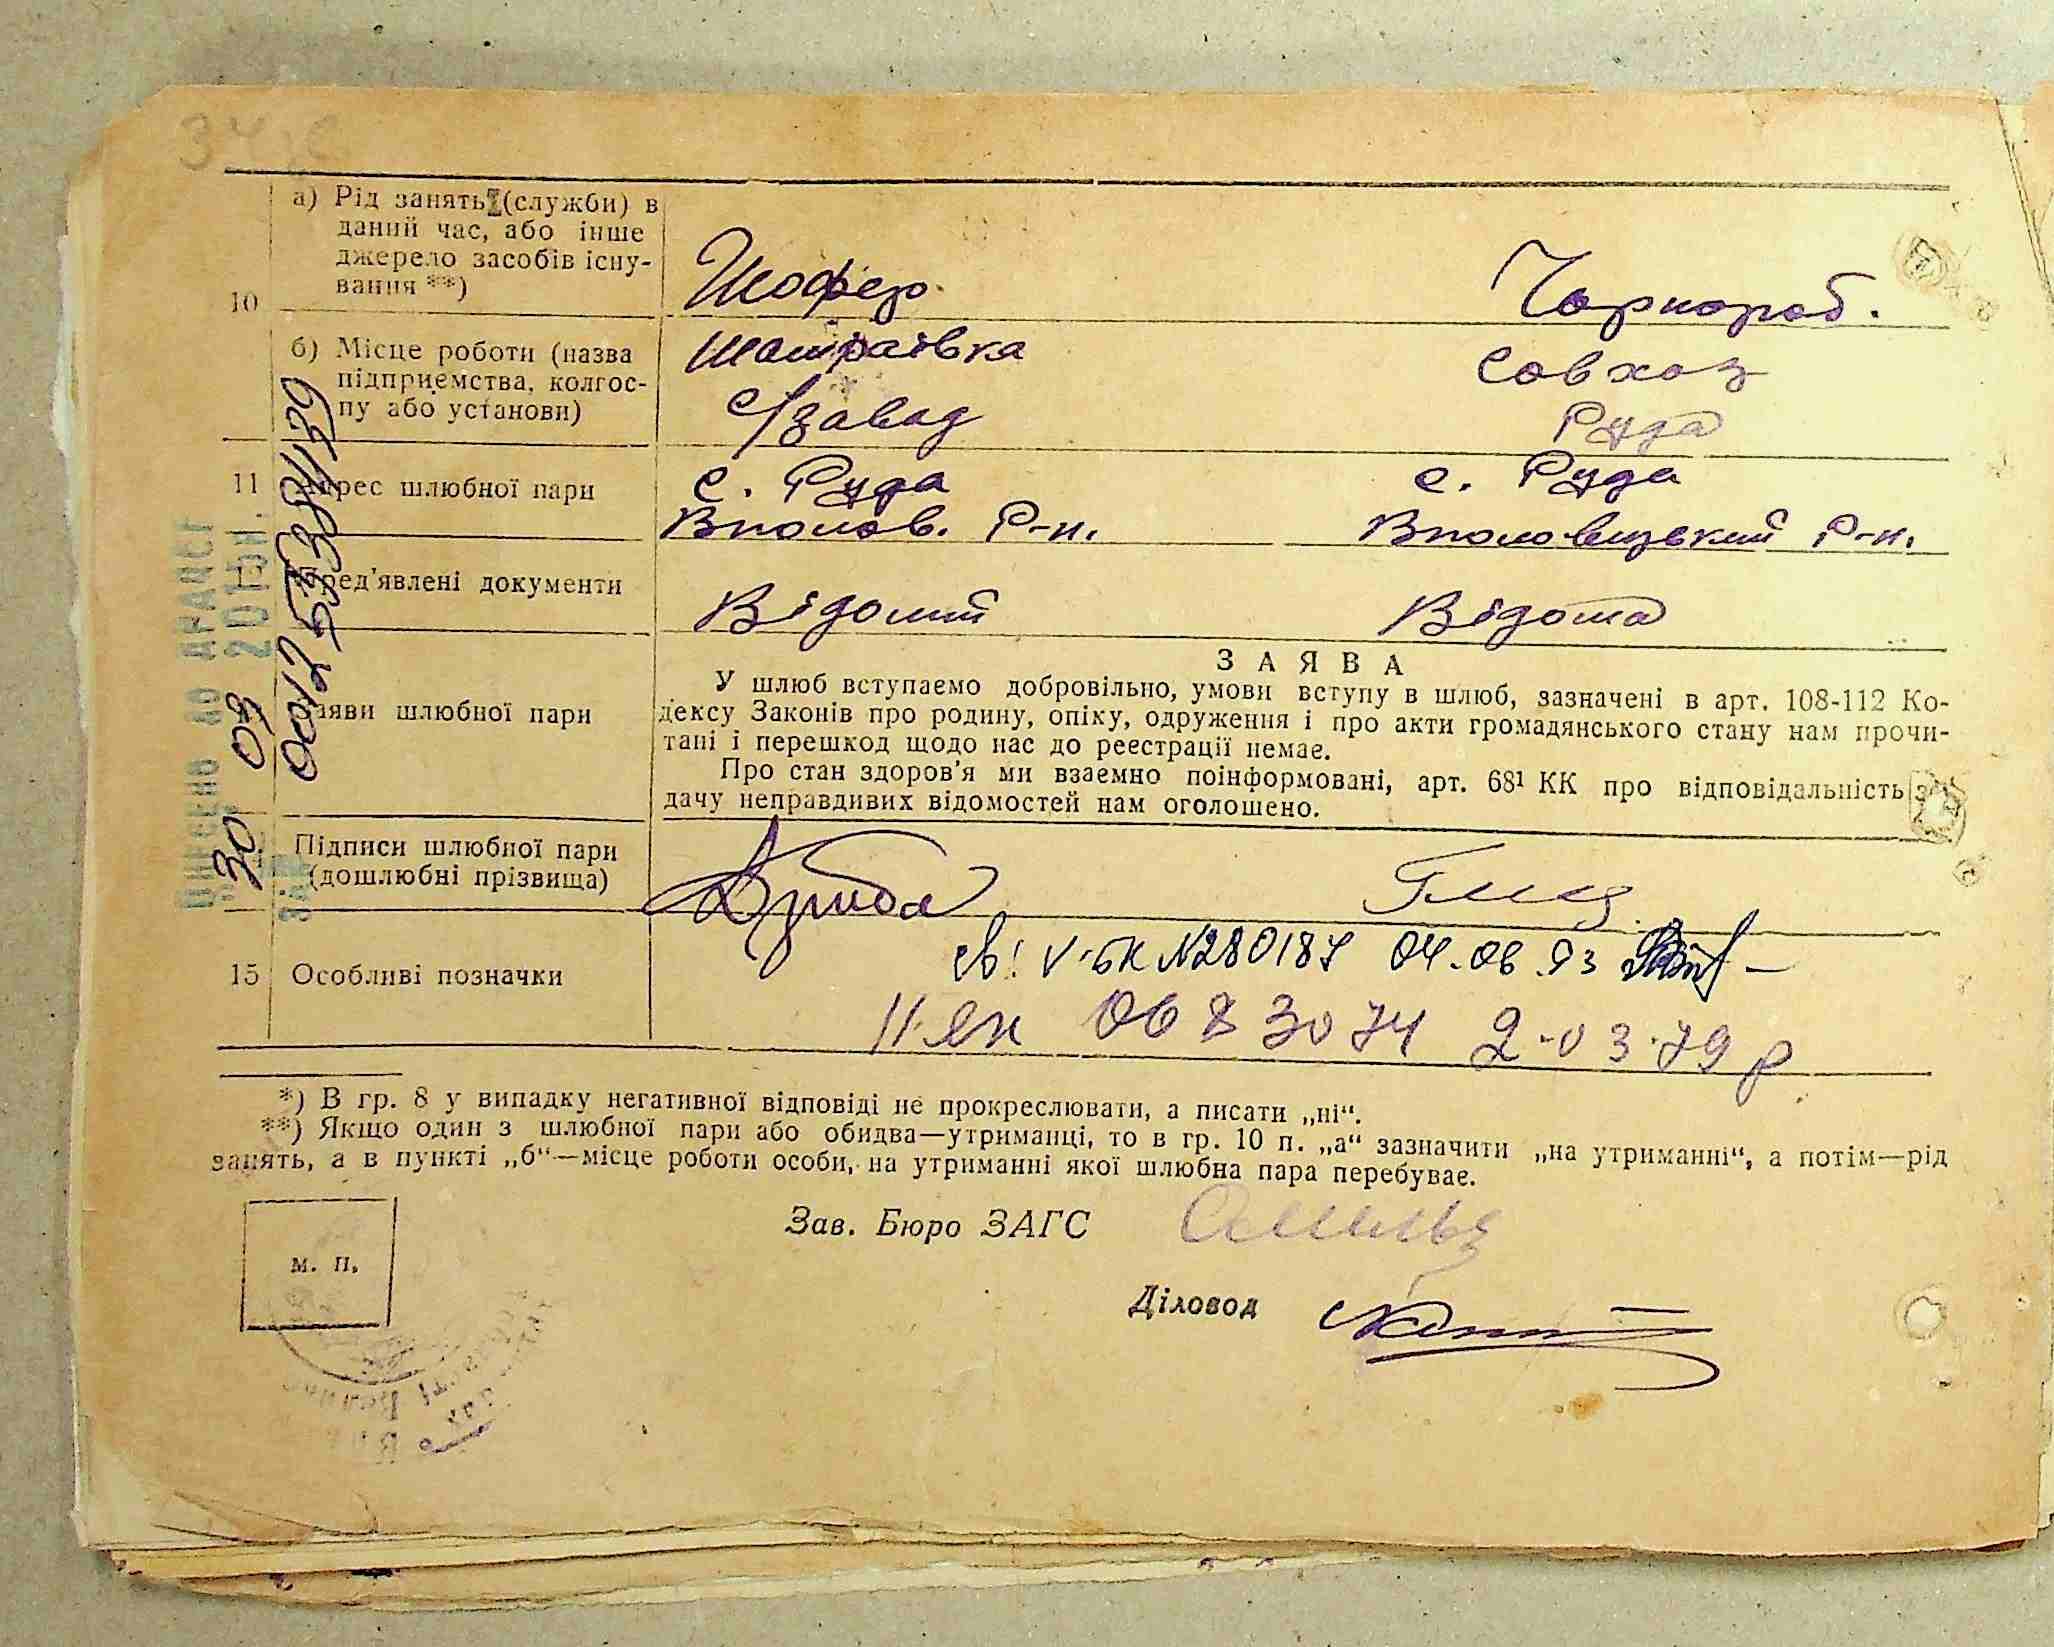 34
10
а) Рід занять (служби) в
даний час, або інше
джерело засобів існу-
вання **)
Шофер
Чорнороб.
б) Місце роботи (назва
підприємства, колгос-
пу або установи)
Шамраївка
С/завод
Совхоз
Руда
11
Адрес шлюбної пари
с. Руда
Вполов. Р-н.
с. Руда
Вполовецький Р-н.
Пред'явлені документи
Відомий
Відома
Заяви шлюбної пари
ЗАЯВА
У шлюб вступаємо добровільно, умови вступу в шлюб, зазначені в арт. 108-112 Ко-
дексу Законів про родину, опіку, одруження і про акти громадянського стану нам прочи-
тані і перешкод щодо нас до реєстрації немає.
Про стан здоров'я ми взаємно поінформовані, арт. 68¹ КК про відповідальність за
дачу неправдивих відомостей нам оголошено.
Підписи шлюбної пари
(дошлюбні прізвища)
15
Особливі позначки
V-БК N280187 04.06.93
II ЯК 0683074 2-03-79 р
*) В гр. 8 у випадку негативної відповіді не прокреслювати, а писати „ні“.
**) Якщо один з шлюбної пари або обидва—утриманці, то в гр. 10 п. „а“ зазначити „на утриманні“, а потім—рід
занять, а в пункті „б“—місце роботи особи, на утриманні якої шлюбна пара перебуває.
Зав. Бюро ЗАГС
м. п.
Діловод
Внесено до ДРАЦСГ
30 03 2011р.
00125338439